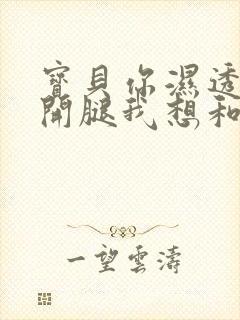 寶貝你濕透
開腿我想和
一望雲濤